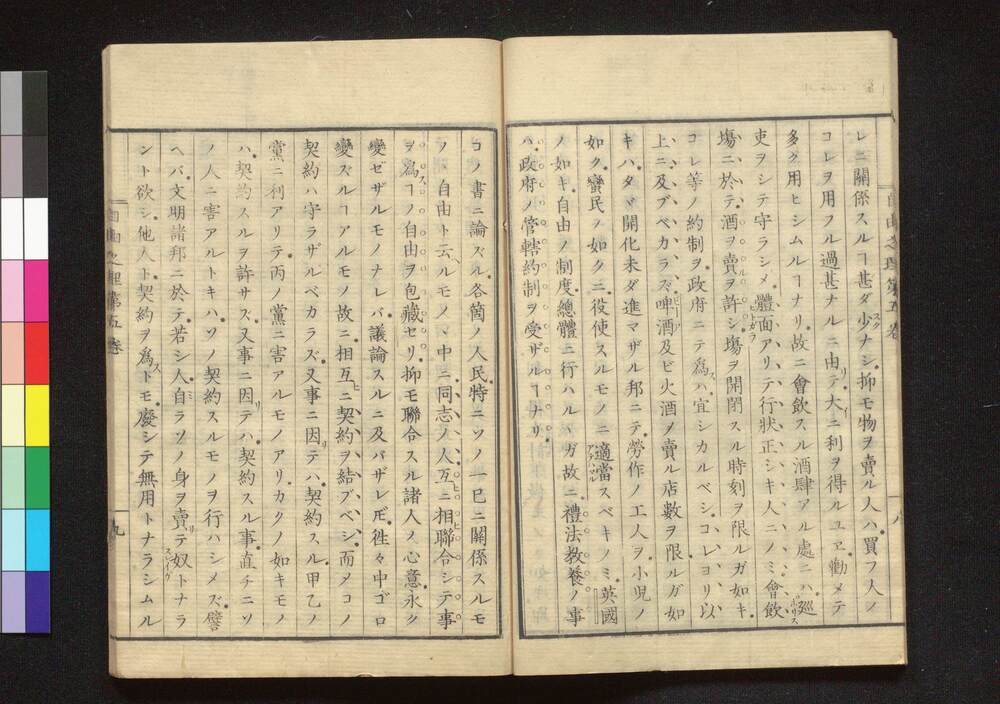 レニ關係スルヿ甚ダ少ナシ抑モ物ヲ賣ル人ハ買フ人ノ
コレヲ用フル過甚ナルニ由テ大ニ利ヲ得ルユヱ勸メテ
多ク用ヒシムルヿナリ故ニ會飲スル酒肆アル處ニハ巡
吏ヲシテ守ラシメ體面アリテ行狀正シキ人ニノミ會飲
塲ニ於テ酒ヲ賣ヲ許シ塲ヲ開閉スル時刻ヲ限ルガ如キ
コレ等ノ約制ヲ政府ニテ爲ハ宜シカルベシコレヨリ以
上ニ及ブベカラズ啤酒及ビ火酒ノ賣ル店數ヲ限ルガ如
キハタヾ開化未ダ進マザル邦ニテ勞作ノ工人ヲ小児ノ
如ク蠻民ノ如クニ役使スルモノニ適當スベキノミ英國
ノ如キ自由ノ制度總體ニ行ハルヽガ故ニ禮法教養ノ事
ハ政府ノ管轄約制ヲ受ザルヿナリ
コノ書ニ論ズル各箇ノ人民特ニソノ一巳ニ關係スルモ
ノヽ自由ト云ヘルモノヽ中ニ同志ノ人互ニ相聯合シテ事
ヲ爲ヿノ自由ヲ包藏セリ抑モ聯合スル諸人ノ心意永ク
變ゼザルモノナレバ議論スルニ及バザレ𪜈徃々中ゴロ
變ズルヿアルモノ故ニ相互ニ契約ヲ結ブベシ而メコノ
契約ハ守ラザルベカラズ又事ニ因テハ契約スル甲乙ノ
黨ニ利アリテ丙ノ黨ニ害アルモノアリカクノ如キモノ
ハ契約スルヲ許サズ又事ニ因テハ契約スル事直チニソ
ノ人ニ害アルトキハソノ契約スルモノヲ行ハシメズ譬
ヘバ文明諸邦ニ於テ若シ人自ラソノ身ヲ賣テ奴トナラ
ント欲シ他人ト契約ヲ爲トモ廢シテ無用トナラシムル
自由之理第五卷
九